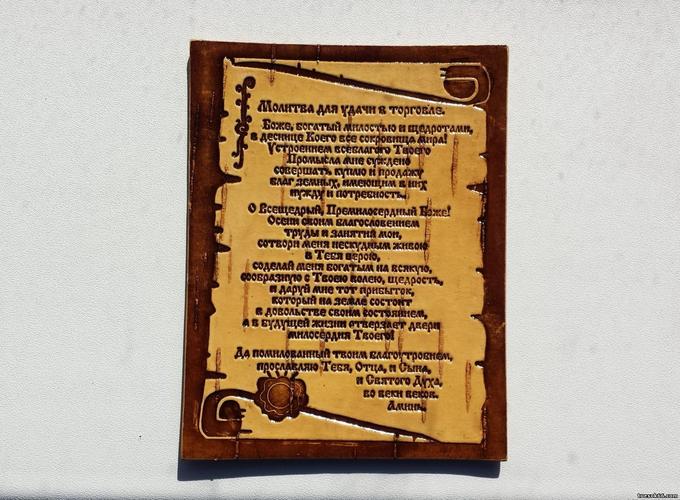 Молитва для удачи в торговле.
Боже, богатый милостью и щедротами,
в деснице Коего все сокровища мира!
Устроением всеблагого Твоего
Промысла мне суждено
совершать куплю и продажу
благ земных, имеющим в них
нужду и потребность.
О Всещедрый, Премилосердный Боже!
Осени своим благословением
труды и занятий мои,
сотвори меня нескудным живою
в Тебя верою,
соделай меня богатым на всякую,
сообразную с Твоею волею, щедрость,
и даруй мне тот прибыток,
который на земле состоит
в довольстве своим состоянием,
а в будущей жизни отверзает двери
милосердия Твоего!
Да помилованный твоим благоутробием,
прославляю Тебя, Отца, и Сына,
и Святого Духа,
во веки веков.
Аминь.